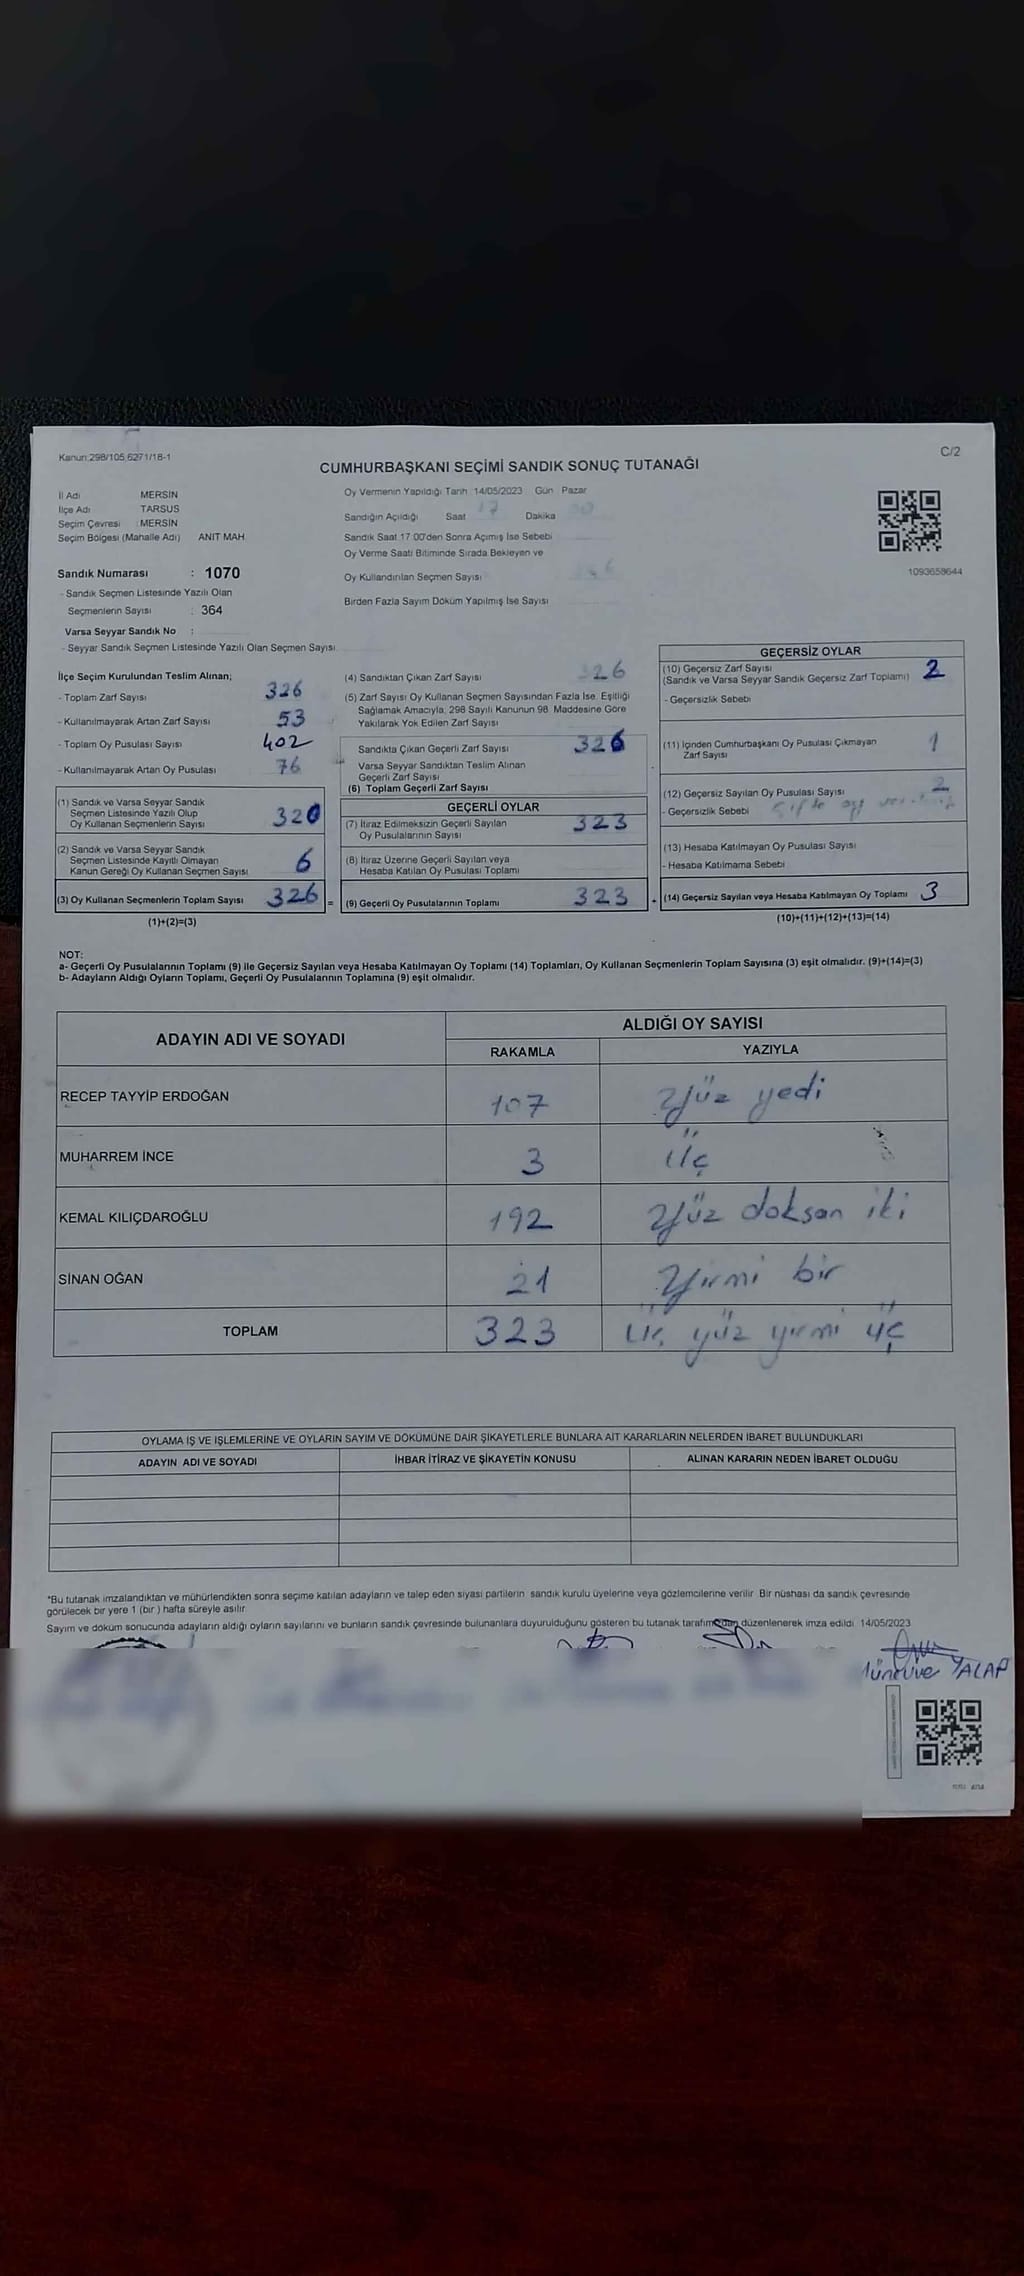 Kanun:298/105,6271/18-1
C/2
CUMHURBAŞKANI SEÇİMİ SANDIK SONUÇ TUTANAĞI
İl Adı MERSİN
İlçe Adı TARSUS
Seçim Çevresi : MERSİN
Seçim Bölgesi (Mahalle Adı) ANIT MAH
Sandık Numarası : 1070
- Sandık Seçmen Listesinde Yazılı Olan
Seçmenlerin Sayısı : 364
Varsa Seyyar Sandık No :
- Seyyar Sandık Seçmen Listesinde Yazılı Olan Seçmen Sayısı
Oy Vermenin Yapıldığı Tarih 14/05/2023 Gün Pazar
Sandığın Açıldığı Saat 17 Dakika
Sandık Saat 17 00'den Sonra Açımış İse Sebebi
Oy Verme Saati Bitiminde Sırada Bekleyen ve
Oy Kullandırılan Seçmen Sayısı
Birden Fazla Sayım Döküm Yapılmış İse Sayısı
1093658644
İlçe Seçim Kurulundan Teslim Alınan;
- Toplam Zarf Sayısı 326
- Kullanılmayarak Artan Zarf Sayısı 53
- Toplam Oy Pusulası Sayısı 402
- Kullanılmayarak Artan Oy Pusulası 76
(1) Sandık ve Varsa Seyyar Sandık
Seçmen Listesinde Yazılı Olup
Oy Kullanan Seçmenlerin Sayısı 320
(2) Sandık ve Varsa Seyyar Sandık
Seçmen Listesinde Kayıtlı Olmayan
Kanun Gereği Oy Kullanan Seçmen Sayısı 6
(3) Oy Kullanan Seçmenlerin Toplam Sayısı 326 =
(1)+(2)=(3)
(4) Sandıktan Çıkan Zarf Sayısı 326
(5) Zarf Sayısı Oy Kullanan Seçmen Sayısından Fazla İse, Eşitliği
Sağlamak Amacıyla, 298 Sayılı Kanunun 98. Maddesine Göre
Yakılarak Yok Edilen Zarf Sayısı
Sandıkta Çıkan Geçerli Zarf Sayısı 326
Varsa Seyyar Sandıktan Teslim Alınan
Geçerli Zarf Sayısı
(6) Toplam Geçerli Zarf Sayısı
GEÇERLİ OYLAR
(7) İtiraz Edilmeksizin Geçerli Sayılan
Oy Pusulalarının Sayısı 323
(8) İtiraz Üzerine Geçerli Sayılan veya
Hesaba Katılan Oy Pusulası Toplamı
(9) Geçerli Oy Pusulalarının Toplamı 323 +
GEÇERSİZ OYLAR
(10) Geçersiz Zarf Sayısı
(Sandık ve Varsa Seyyar Sandık Geçersiz Zarf Toplamı) 2
- Geçersizlik Sebebi
(11) İçinden Cumhurbaşkanı Oy Pusulası Çıkmayan
Zarf Sayısı 1
(12) Geçersiz Sayılan Oy Pusulası Sayısı 2
- Geçersizlik Sebebi
(13) Hesaba Katılmayan Oy Pusulası Sayısı
- Hesaba Katılmama Sebebi
(14) Geçersiz Sayılan veya Hesaba Katılmayan Oy Toplamı 3
(10)+(11)+(12)+(13)=(14)
NOT:
a- Geçerli Oy Pusulalarının Toplamı (9) ile Geçersiz Sayılan veya Hesaba Katılmayan Oy Toplamı (14) Toplamları, Oy Kullanan Seçmenlerin Toplam Sayısına (3) eşit olmalıdır. (9)+(14)=(3)
b- Adayların Aldığı Oyların Toplamı, Geçerli Oy Pusulalarının Toplamına (9) eşit olmalıdır.
ADAYIN ADI VE SOYADI ALDIĞI OY SAYISI
RAKAMLA YAZIYLA
RECEP TAYYİP ERDOĞAN 107 Yüz yedi
MUHARREM İNCE 3 Üç
KEMAL KILIÇDAROĞLU 192 Yüz doksan iki
SİNAN OĞAN 21 Yirmi bir
TOPLAM 323 Üç yüz yirmi üç
OYLAMA İŞ VE İŞLEMLERİNE VE OYLARIN SAYIM VE DÖKÜMÜNE DAİR ŞİKAYETLERLE BUNLARA AİT KARARLARIN NELERDEN İBARET BULUNDUKLARI
ADAYIN ADI VE SOYADI İHBAR İTİRAZ VE ŞİKAYETİN KONUSU ALINAN KARARIN NEDEN İBARET OLDUĞU
*Bu tutanak imzalandıktan ve mühürlendikten sonra seçime katılan adayların ve talep eden siyasi partilerin sandık kurulu üyelerine veya gözlemcilerine verilir. Bir nüshası da sandık çevresinde
görülecek bir yere 1 (bir) hafta süreyle asılır.
Sayım ve döküm sonucunda adayların aldığı oyların sayılarını ve bunların sandık çevresinde bulunanlara duyurulduğunu gösteren bu tutanak tarafımızdan düzenlenerek imza edildi. 14/05/2023
YALAP